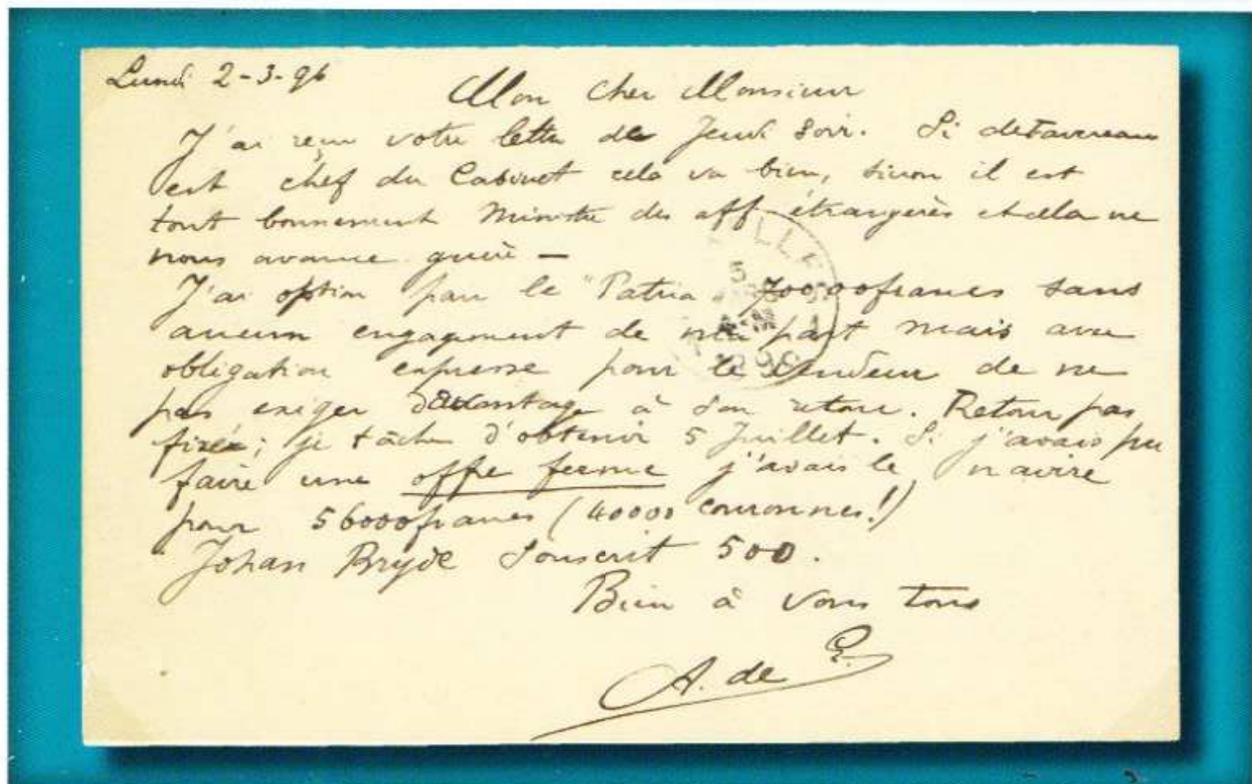 Lundi 2-3-96
Mon cher Monsieur
J'ai reçu votre lettre de Jeudi soir. Si de Favereau
est chef du Cabinet cela va bien, sinon il est
tout bonnement Ministre des aff étrangères et cela ne
nous avance guère —
J'ai option pour le "Patria" 70000 francs sans
aucun engagement de ma part mais avec
obligation expresse pour le vendeur de ne
pas exiger davantage à son retour. Retour pas
fixé; je tâche d'obtenir 5 Juillet. Si j'avais pu
faire une offre ferme j'avais le navire
pour 56000 francs (40000 couronnes!)
Johan Bryde souscrit 500.
Bien à vous tous
A. de G.